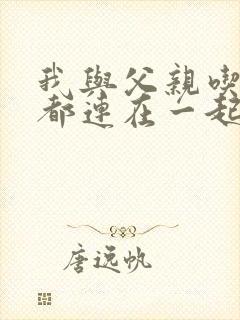 我與父親喫
都連在一起
唐逸帆